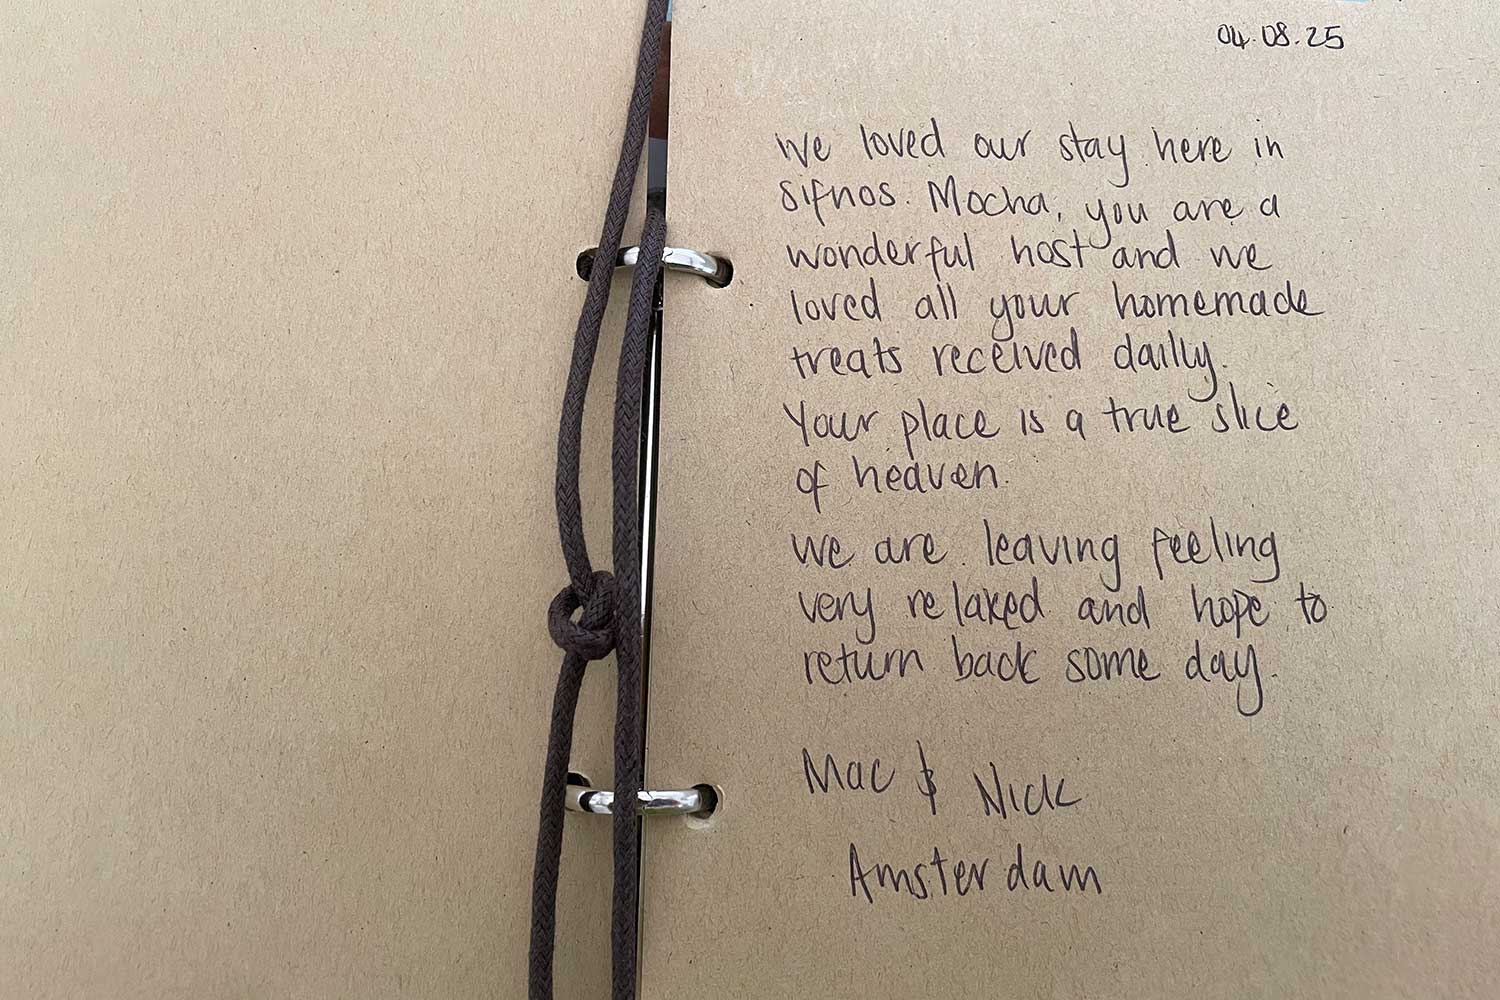 04.08.25
We loved our stay here in
sifnos. Mocha, you are a
wonderful host and we
loved all your homemade
treats received daily.
Your place is a true slice
of heaven.
We are leaving feeling
very relaxed and hope to
return back some day.
Mac & Nick
Amsterdam